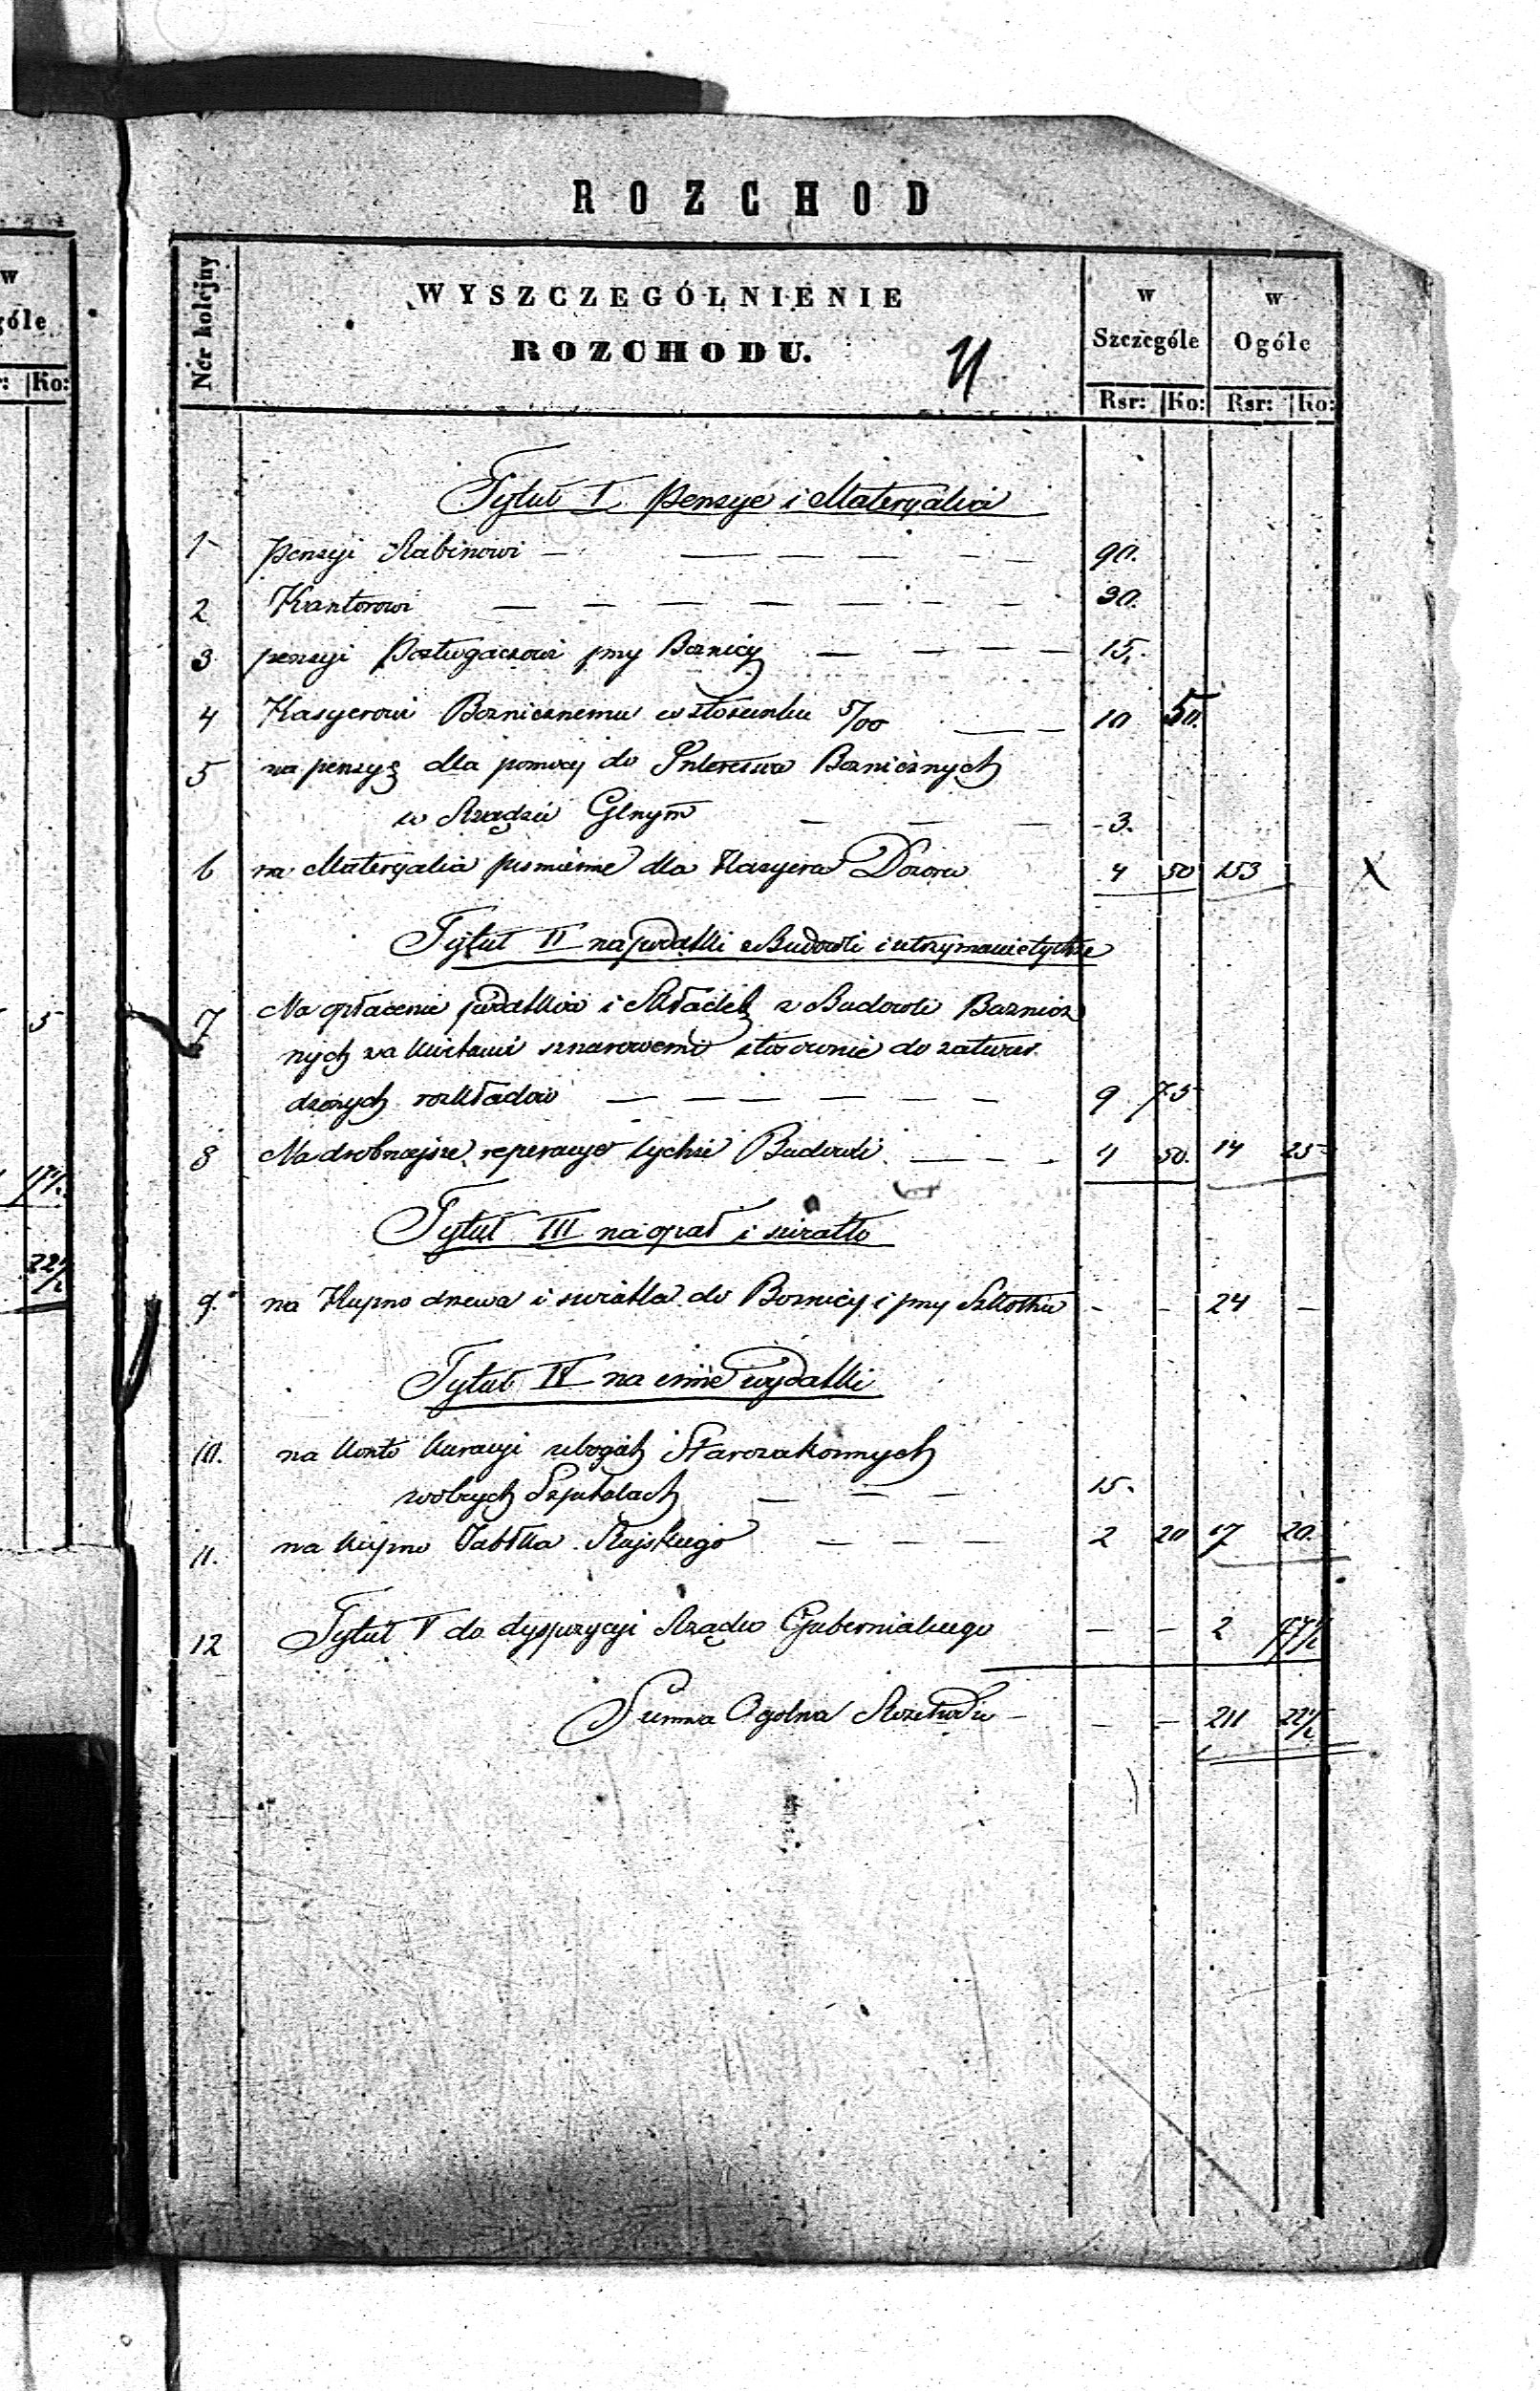 w
góle
r: Ko:
5
17½
22½
ROZCHOD
Ner kolejny
WYSZCZEGÓLNIENIE
ROZCHODU.
w Szczególe
w Ogóle
Rsr: Ko: Rsr: Ko:
Tytuł I. Pensye i Materyalia
1 Pensyi Rabinowi — — — — — — 90.
2 Kantorowi — — — — — — — 30.
3 pensyi Posługaczowi przy Boznicy — — — — 15.
4 Kasyerowi Boznicznemu w stosunku 5/00 — — 10 50.
5 na pensyę dla pomocy do Interesów Boznicznych
w Rządzie Glnym — — — 3.
6 na Materyalia pismienne dla Kasyera Dozoru 4 50 153 X
Tytuł II na podatki z Budowli i utrzymanie tychże
7 Na opłacenie podatków i Składek z Budowli Boznicz
nych za kwitami sznurowemi stosownie do zatwier
dzonych rozkładów — — — — — 9 75
8 Na drobniejsze reperacye tychże Budowli — — — 4 50. 14 25
Tytuł III na opał i światło
9. na Kupno drzewa i światła do Boznicy i przy Szkolku - - 24 —
Tytuł IV na inne wydatki
10. na konto kuracyi ubogich Starozakonnych
w obcych Szpitalach — — — 15.
11. na kupno Jabłka Rajskiego — — — 2 20 17 20.
12 Tytuł V do dyspozycyi Rządu Gubernialnego — — 2 77½
Summa Ogolna Rozchodu — — — 211 22½